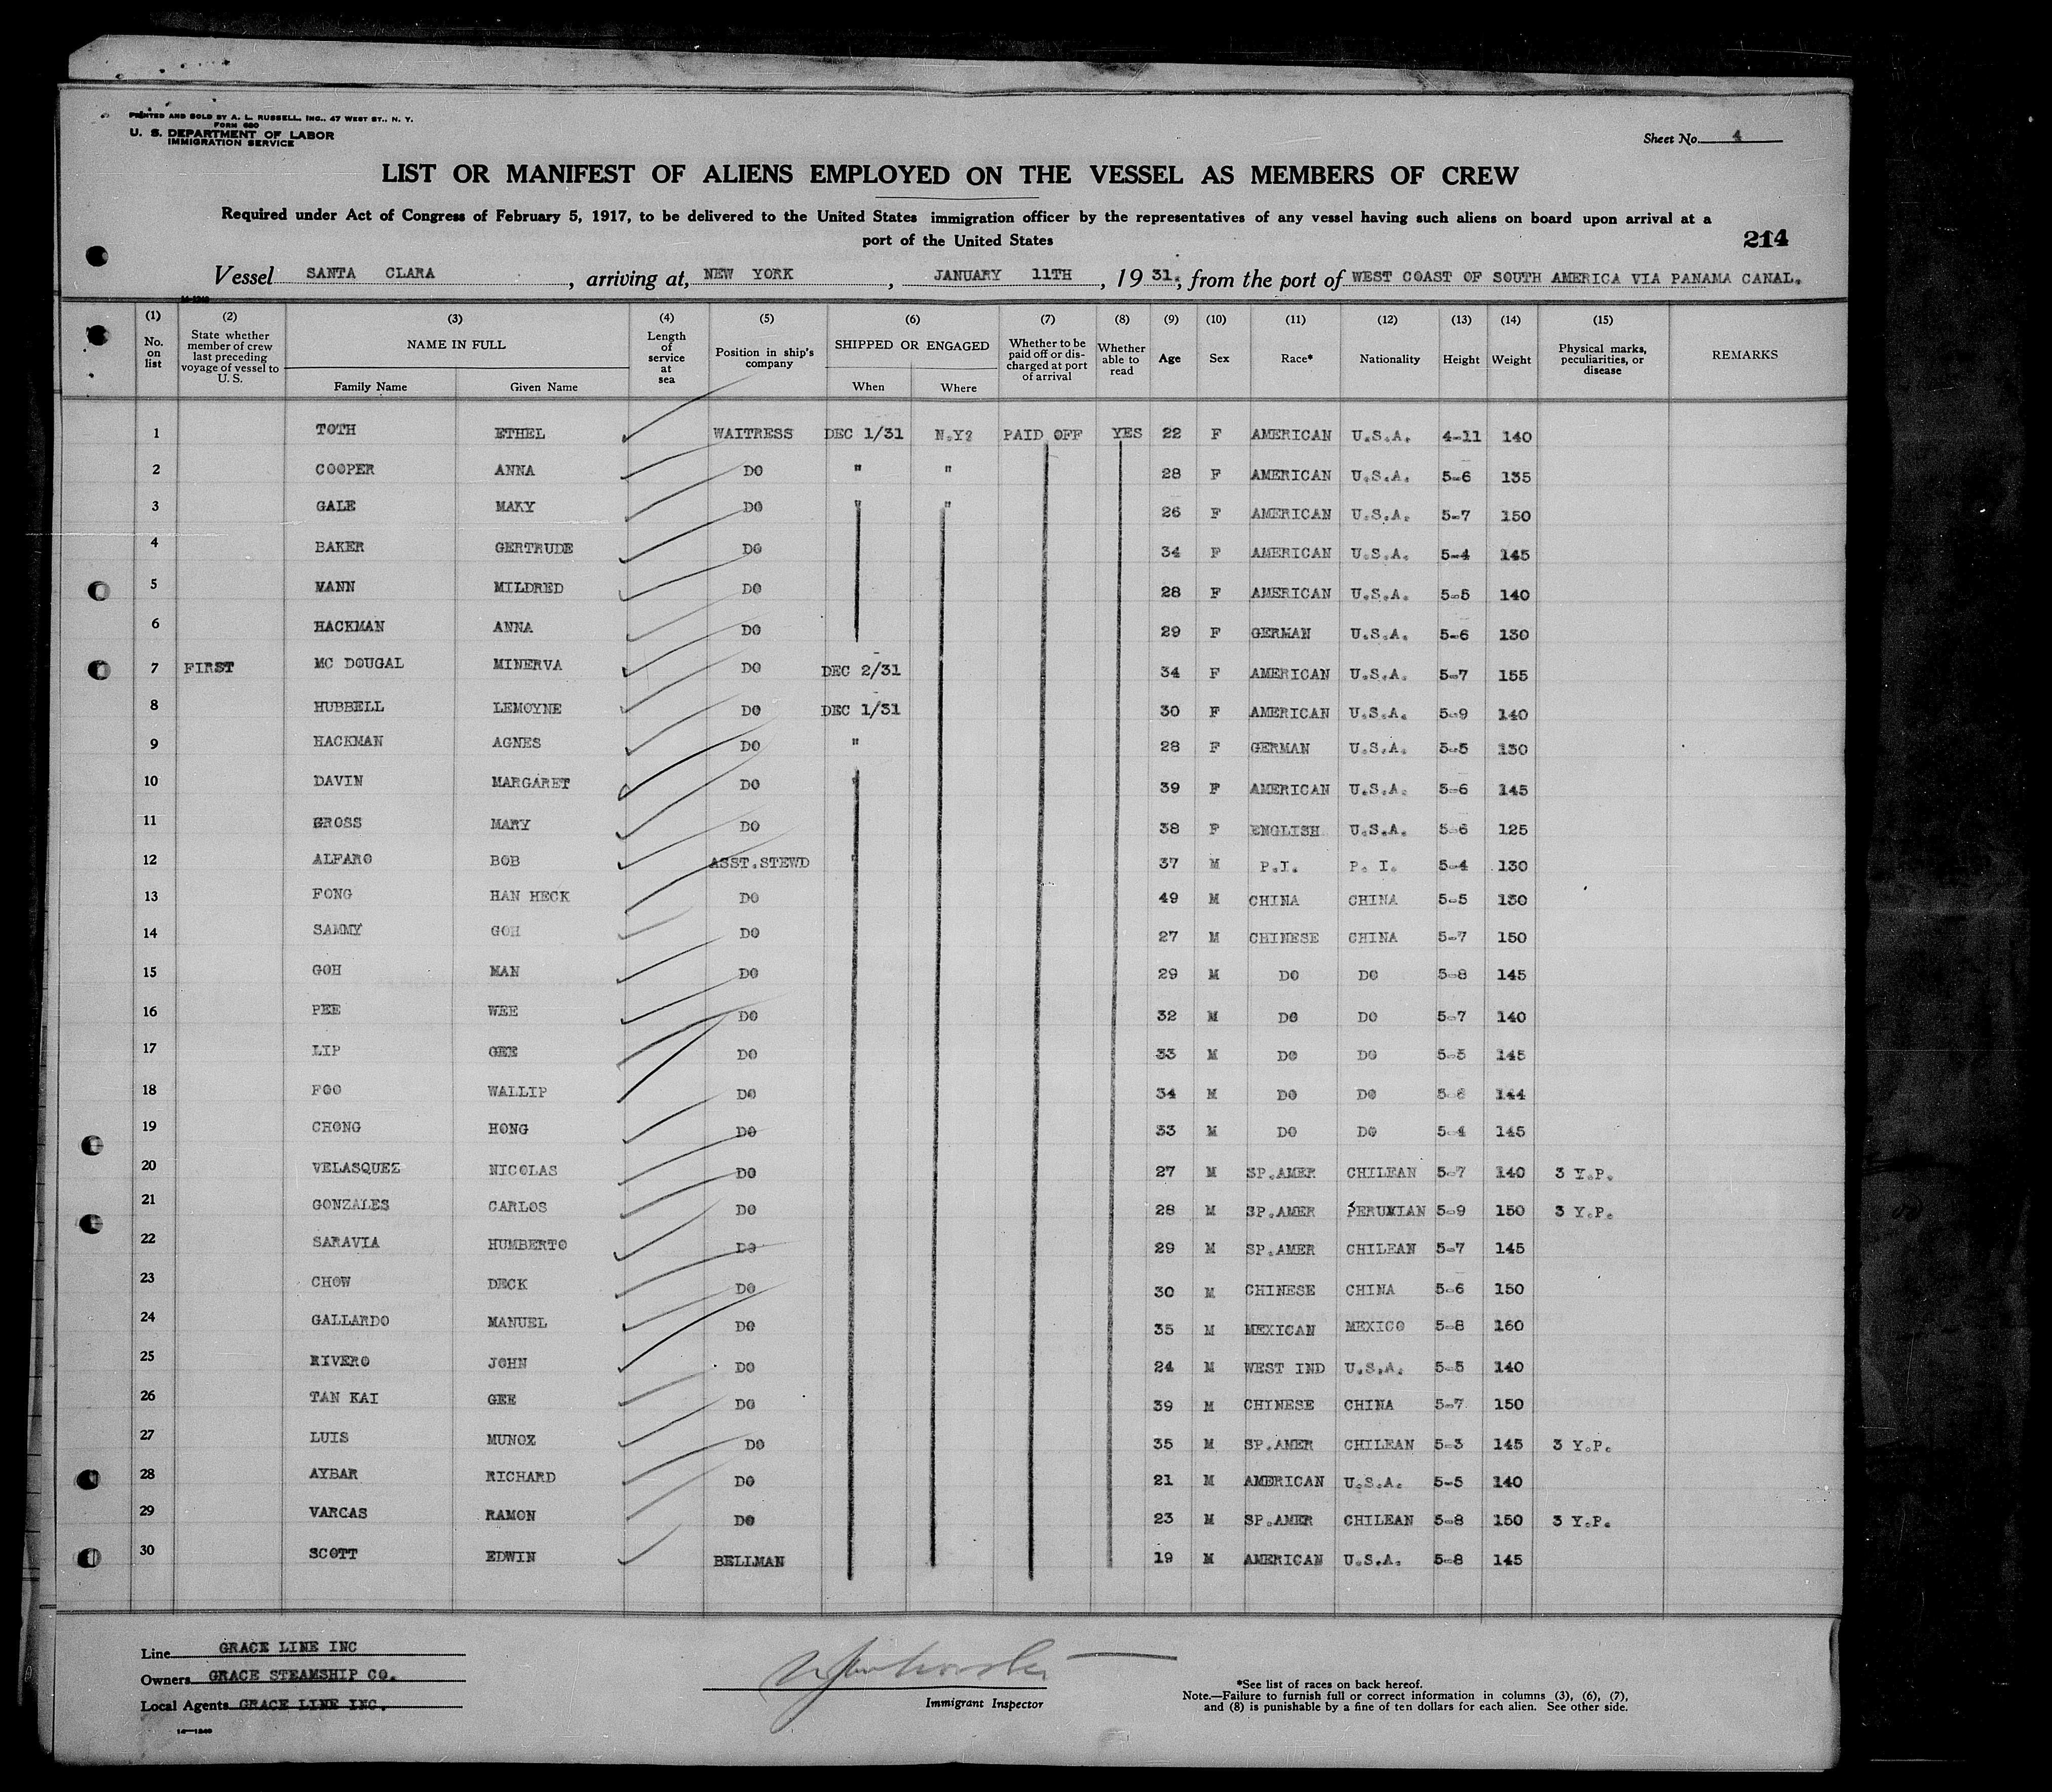 PRINTED AND SOLD BY A. L. RUSSELL, INC., 47 WEST ST., N. Y.
FORM 680
U. S. DEPARTMENT OF LABOR
IMMIGRATION SERVICE
Sheet No. 4
LIST OR MANIFEST OF ALIENS EMPLOYED ON THE VESSEL AS MEMBERS OF CREW
Required under Act of Congress of February 5, 1917, to be delivered to the United States immigration officer by the representatives of any vessel having such aliens on board upon arrival at a
port of the United States
214
Vessel SANTA CLARA, arriving at, NEW YORK, JANUARY 11TH, 1931, from the port of WEST COAST OF SOUTH AMERICA VIA PANAMA CANAL.
14-1240
(1) No. on list (2) State whether member of crew last preceding voyage of vessel to U. S. (3) NAME IN FULL Family Name Given Name (4) Length of service at sea (5) Position in ship's company (6) SHIPPED OR ENGAGED When Where (7) Whether to be paid off or discharged at port of arrival (8) Whether able to read (9) Age (10) Sex (11) Race* (12) Nationality (13) Height (14) Weight (15) Physical marks, peculiarities, or disease REMARKS
1 TOTH ETHEL WAITRESS DEC 1/31 N.Y? PAID OFF YES 22 F AMERICAN U.S.A. 4-11 140
2 COOPER ANNA DO " " 28 F AMERICAN U.S.A. 5-6 135
3 GALE MAKY DO " " 26 F AMERICAN U.S.A. 5-7 150
4 BAKER GERTRUDE DO 34 F AMERICAN U.S.A. 5-4 145
5 MANN MILDRED DO 28 F AMERICAN U.S.A. 5-5 140
6 HACKMAN ANNA DO 29 F GERMAN U.S.A. 5-6 130
7 FIRST MC DOUGAL MINERVA DO DEC 2/31 34 F AMERICAN U.S.A. 5-7 155
8 HUBBELL LEMOYNE DO DEC 1/31 30 F AMERICAN U.S.A. 5-9 140
9 HACKMAN AGNES DO " 28 F GERMAN U.S.A. 5-5 130
10 DAVIN MARGARET DO " 39 F AMERICAN U.S.A. 5-6 145
11 GROSS MARY DO 38 F ENGLISH U.S.A. 5-6 125
12 ALFARO BOB ASST.STEWD " 37 M P.I. P. I. 5-4 130
13 FONG HAN HECK DO 49 M CHINA CHINA 5-5 130
14 SAMMY GOH DO 27 M CHINESE CHINA 5-7 150
15 GOH MAN DO 29 M DO DO 5-8 145
16 PEE WEE DO 32 M DO DO 5-7 140
17 LIP GEE DO 33 M DO DO 5-5 145
18 FOO WALLIP DO 34 M DO DO 5-6 144
19 CHONG HONG DO 33 M DO DO 5-4 145
20 VELASQUEZ NICOLAS DO 27 M SP.AMER CHILEAN 5-7 140 3 Y.P.
21 GONZALES CARLOS DO 28 M SP.AMER PERUVIAN 5-9 150 3 Y.P.
22 SARAVIA HUMBERTO DO 29 M SP.AMER CHILEAN 5-7 145
23 CHOW DECK DO 30 M CHINESE CHINA 5-6 150
24 GALLARDO MANUEL DO 35 M MEXICAN MEXICO 5-8 160
25 RIVERO JOHN DO 24 M WEST IND U.S.A. 5-5 140
26 TAN KAI GEE DO 39 M CHINESE CHINA 5-7 150
27 LUIS MUNOZ DO 35 M SP.AMER CHILEAN 5-3 145 3 Y.P.
28 AYBAR RICHARD DO 21 M AMERICAN U.S.A. 5-5 140
29 VARGAS RAMON DO 23 M SP.AMER CHILEAN 5-8 150 3 Y.P.
30 SCOTT EDWIN BELLMAN 19 M AMERICAN U.S.A. 5-8 145
Line GRACE LINE INC
Owners GRACE STEAMSHIP CO.
Local Agents GRACE LINE INC.
14-1240
Immigrant Inspector
*See list of races on back hereof.
Note.—Failure to furnish full or correct information in columns (3), (6), (7),
and (8) is punishable by a fine of ten dollars for each alien. See other side.